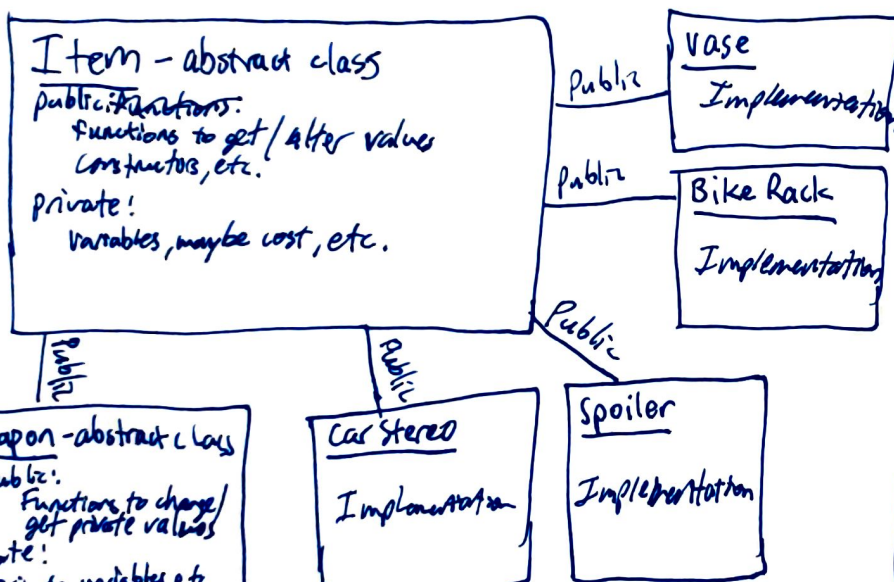 Item - abstract class
public:
functions to get/alter values
constructors, etc.
private:
variables, maybe cost, etc.
Public
Vase
Implementation
Public
Bike Rack
Implementation
Public
Public
Public
apon - abstract class
ublic:
Functions to change/
get private values
te:
variables, etc
Car Stereo
Implementation
Spoiler
Implementation